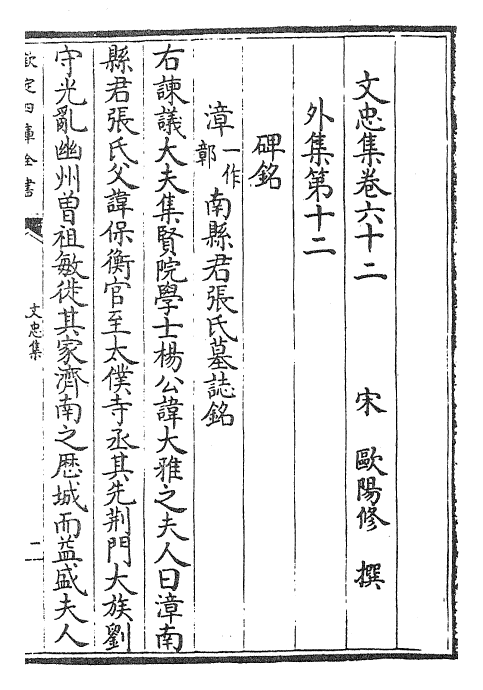 文忠集卷六十二
宋 歐陽修 撰
外集第十二
碑銘
漳一作彰南縣君張氏墓誌銘
右諫議大夫集賢院學士楊公諱大雅之夫人曰漳南
縣君張氏父諱保衡官至太僕寺丞其先荆門大族劉
守光亂幽州曽祖敏徙其家濟南之厯城而益盛夫人
欽定四庫全書
文忠集
二